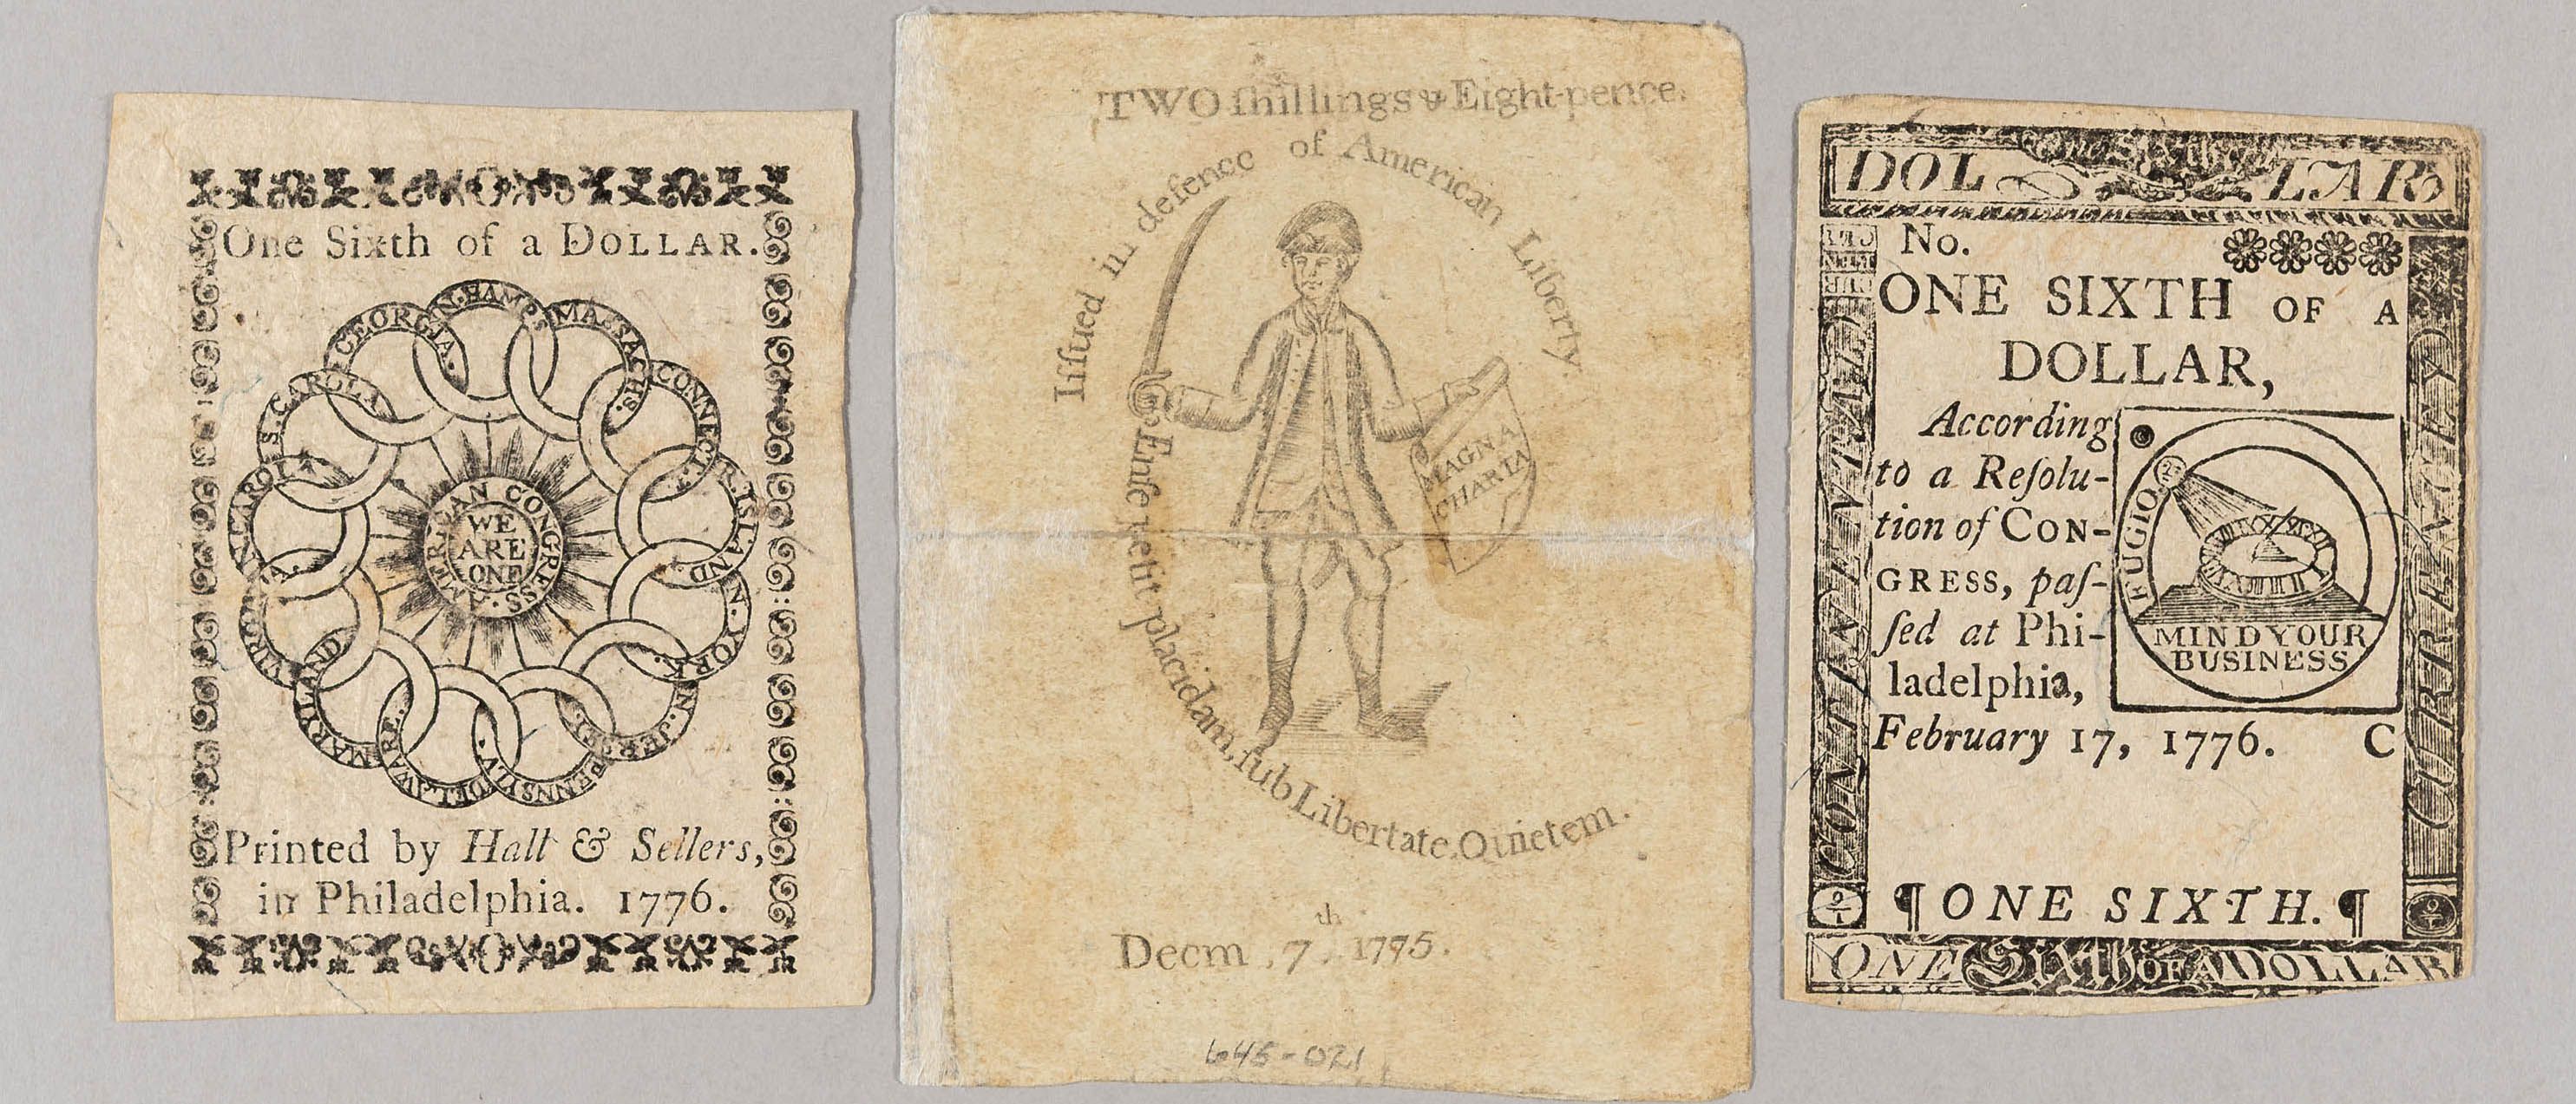 One Sixth of a DOLLAR.
N. HAMPS.
MASSACHS.
CONNECT.
R. ISLAND
N. YORK.
N. JERSEY
PENNSILV.
DELAWARE.
MARYLAND
VIRGINIA.
N. CAROLA
S. CAROLA
GEORGIA.
AMERICAN CONGRESS.
WE
ARE
ONE
Printed by Hall & Sellers,
in Philadelphia. 1776.
TWO ſhillings & Eight-pence.
Iſſued in defence of American Liberty.
MAGNA
CHARTA
Enſe petit placidam, ſub Libertate, Quietem.
Decm, 7,th 1775.
645-021
DOLLAR
No.
ONE SIXTH OF A
DOLLAR,
According
to a Reſolu-
tion of CON-
GRESS, paſ-
ſed at Phi-
ladelphia,
February 17, 1776. C
FUGIO
MIND YOUR
BUSINESS
CONTINENTAL
CURRENCY
¶ ONE SIXTH. ¶
ONE Sixth OF A DOLLAR